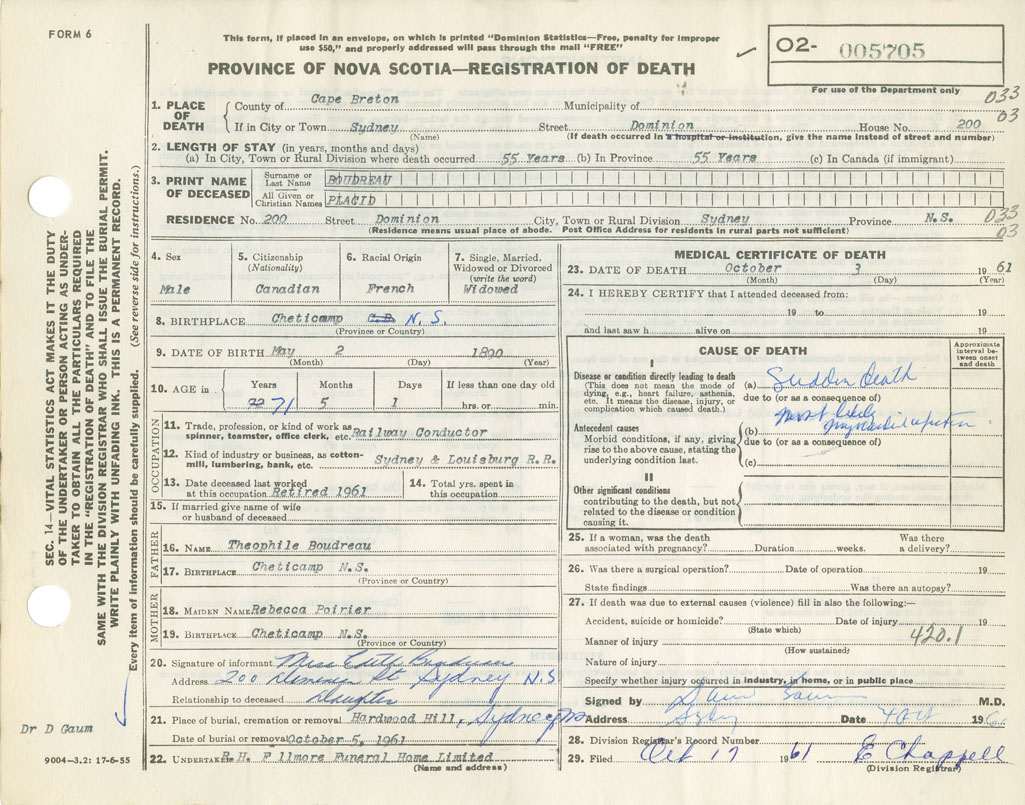 FORM 6
This form, if placed in an envelope, on which is printed "Dominion Statistics—Free, penalty for improper
use $50," and properly addressed will pass through the mail "FREE"
PROVINCE OF NOVA SCOTIA—REGISTRATION OF DEATH
02- 005705
For use of the Department only
033
03
1. PLACE OF DEATH
County of Cape Breton Municipality of
If in City or Town Sydney Street Dominion House No. 200
(Name) (If death occurred in a hospital or institution, give the name instead of street and number)
2. LENGTH OF STAY (in years, months and days)
(a) In City, Town or Rural Division where death occurred 55 Years (b) In Province 55 Years (c) In Canada (if immigrant)
3. PRINT NAME OF DECEASED
Surname or Last Name BOUDREAU
All Given or Christian Names PLACID
RESIDENCE No. 200 Street Dominion City, Town or Rural Division Sydney Province N.S.
(Residence means usual place of abode. Post Office Address for residents in rural parts not sufficient)
033
03
4. Sex
Male
5. Citizenship
(Nationality)
Canadian
6. Racial Origin
French
7. Single, Married, Widowed or Divorced
(write the word)
Widowed
8. BIRTHPLACE Cheticamp C.B. N.S.
(Province or Country)
9. DATE OF BIRTH May 2 1890
(Month) (Day) (Year)
10. AGE in
Years Months Days If less than one day old
71 5 1 hrs. or min.
OCCUPATION
11. Trade, profession, or kind of work as
spinner, teamster, office clerk, etc. Railway Conductor
12. Kind of industry or business, as cotton-
mill, lumbering, bank, etc. Sydney & Louisburg R.R.
13. Date deceased last worked
at this occupation Retired 1961
14. Total yrs. spent in
this occupation
15. If married give name of wife
or husband of deceased
FATHER
16. NAME Theophile Boudreau
17. BIRTHPLACE Cheticamp N.S.
(Province or Country)
MOTHER
18. MAIDEN NAME Rebecca Poirier
19. BIRTHPLACE Cheticamp N.S.
(Province or Country)
20. Signature of informant Miss Edith Boudreau
Address 200 Dominion St. Sydney N.S
Relationship to deceased Daughter
21. Place of burial, cremation or removal Hardwood Hill, Sydney
Date of burial or removal October 5, 1961
22. UNDERTAKER R.H. Fillmore Funeral Home Limited
(Name and address)
MEDICAL CERTIFICATE OF DEATH
23. DATE OF DEATH October 3 1961
(Month) (Day) (Year)
24. I HEREBY CERTIFY that I attended deceased from:
19 to 19
and last saw h alive on 19
CAUSE OF DEATH
Approximate interval be-
tween onset and death
I
Disease or condition directly leading to death
(This does not mean the mode of
dying, e.g., heart failure, asthenia,
etc. It means the disease, injury, or
complication which caused death.)
(a) Sudden death
due to (or as a consequence of)
Antecedent causes
Morbid conditions, if any, giving
rise to the above cause, stating the
underlying condition last.
(b) Most likely
myocardial infarction
due to (or as a consequence of)
(c)
II
Other significant conditions
contributing to the death, but not
related to the disease or condition
causing it.
25. If a woman, was the death
associated with pregnancy? Duration weeks. Was there
a delivery?
26. Was there a surgical operation? Date of operation 19
State findings Was there an autopsy?
27. If death was due to external causes (violence) fill in also the following:—
Accident, suicide or homicide? Date of injury 19
(State which)
420.1
Manner of injury
(How sustained)
Nature of injury
Specify whether injury occurred in industry, in home, or in public place
Signed by M.D.
Address Sydney Date 4 Oct 196
28. Division Registrar's Record Number
29. Filed Oct 17 1961 E Chappell
(Division Registrar)
SEC. 14—VITAL STATISTICS ACT MAKES IT THE DUTY
OF THE UNDERTAKER OR PERSON ACTING AS UNDER-
TAKER TO OBTAIN ALL THE PARTICULARS REQUIRED
IN THE "REGISTRATION OF DEATH" AND TO FILE THE
SAME WITH THE DIVISION REGISTRAR WHO SHALL ISSUE THE BURIAL PERMIT.
WRITE PLAINLY WITH UNFADING INK. THIS IS A PERMANENT RECORD.
Every item of information should be carefully supplied. (See reverse side for instructions.)
Dr D Gaum
9004-3.2: 17-6-55